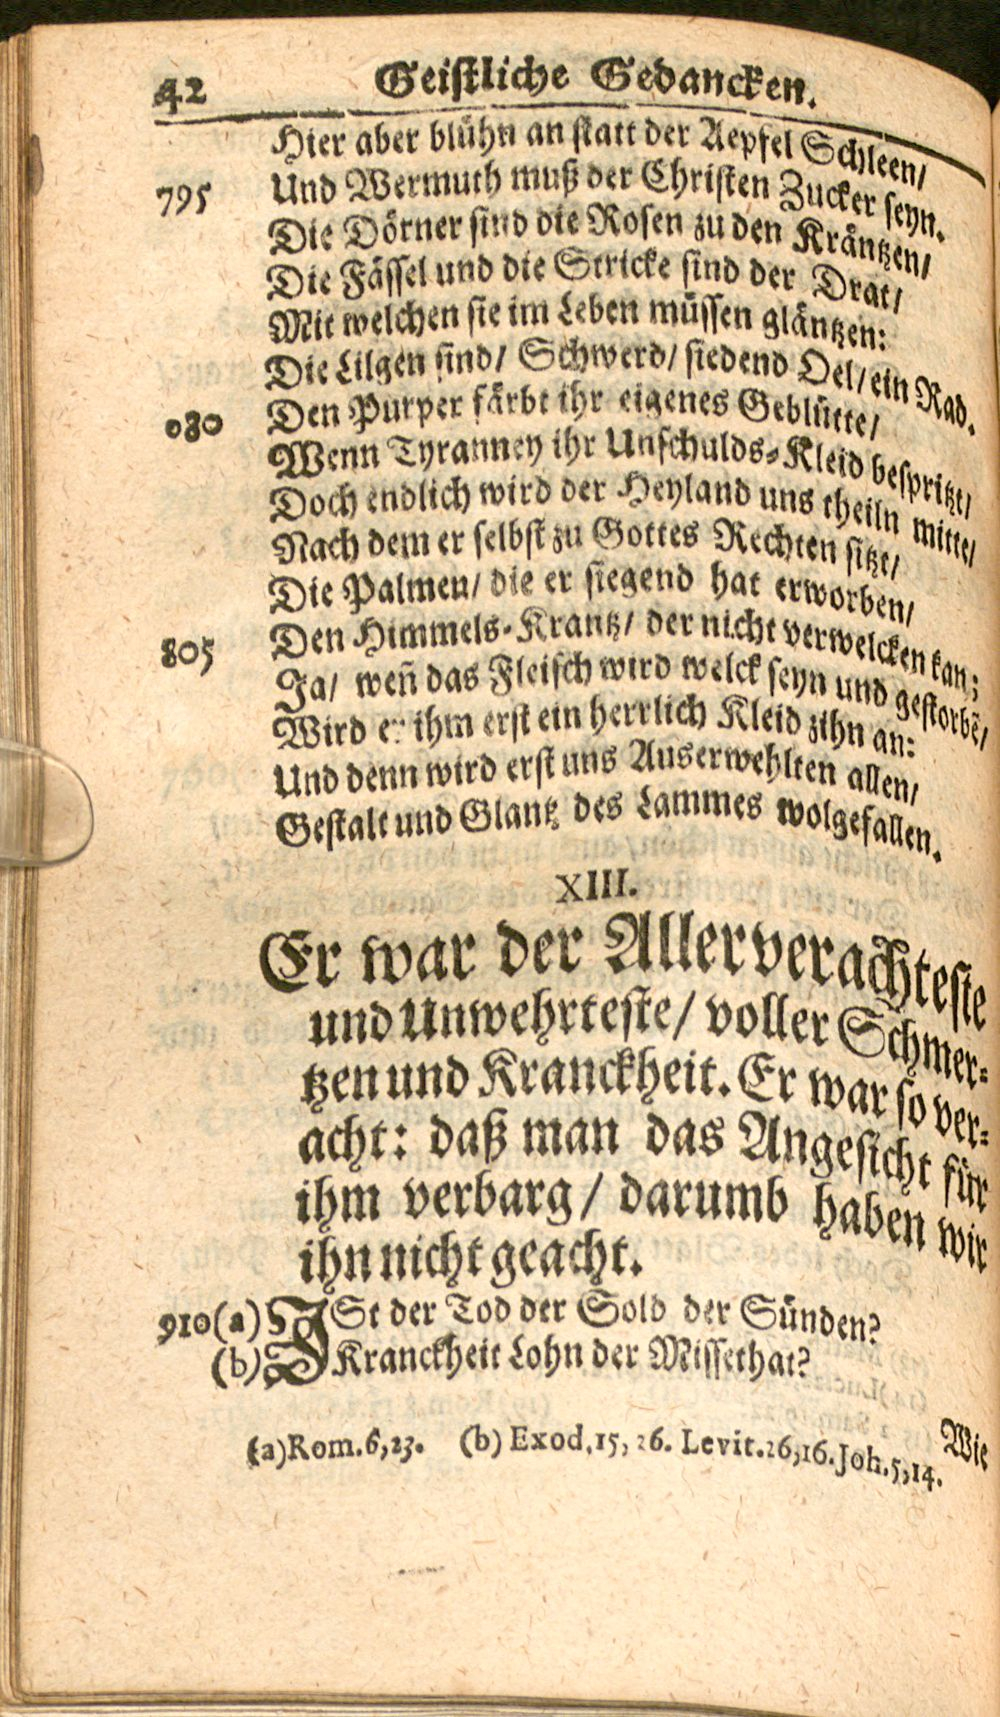 42 Geistliche Gedancken.
Hier aber blühn an statt der Aepfel Schleen/
795 Und Wermuth muß der Christen Zucker seyn.
Die Dörner sind die Rosen zu den Kräntzen/
Die Fässel und die Stricke sind der Drat/
Mit welchen sie im Leben müssen gläntzen:
Die Lilgen sind/ Schwerd/ siedend Oel/ ein Rad.
080 Den Purper färbt ihr eigenes Geblütte/
Wenn Tyranney ihr Unschulds-Kleid bespritzt/
Doch endlich wird der Heyland uns theiln mitte/
Nach dem er selbst zu Gottes Rechten sitzt/
Die Palmen/ die er siegend hat erworben/
805 Den Himmels-Krantz/ der nicht verwelcken kan;
Ja/ weñ das Fleisch wird welck seyn und gestorbẽ/
Wird er ihm erst ein herrlich Kleid zihn an:
Und denn wird erst uns Auserwehlten allen/
Gestalt und Glantz des Lammes wolgefallen.
XIII.
Er war der Allerverachteste
und Unwehrteste/ voller Schmer-
tzen und Kranckheit. Er war so ver-
acht: daß man das Angesicht für
ihm verbarg/ darumb haben wir
ihn nicht geacht.
910 (a) ISt der Tod der Sold der Sünden?
(b) Kranckheit Lohn der Missethat?
Wie
(a) Rom. 6, 23. (b) Exod. 15, 26. Levit. 26, 16. Joh. 5, 14.